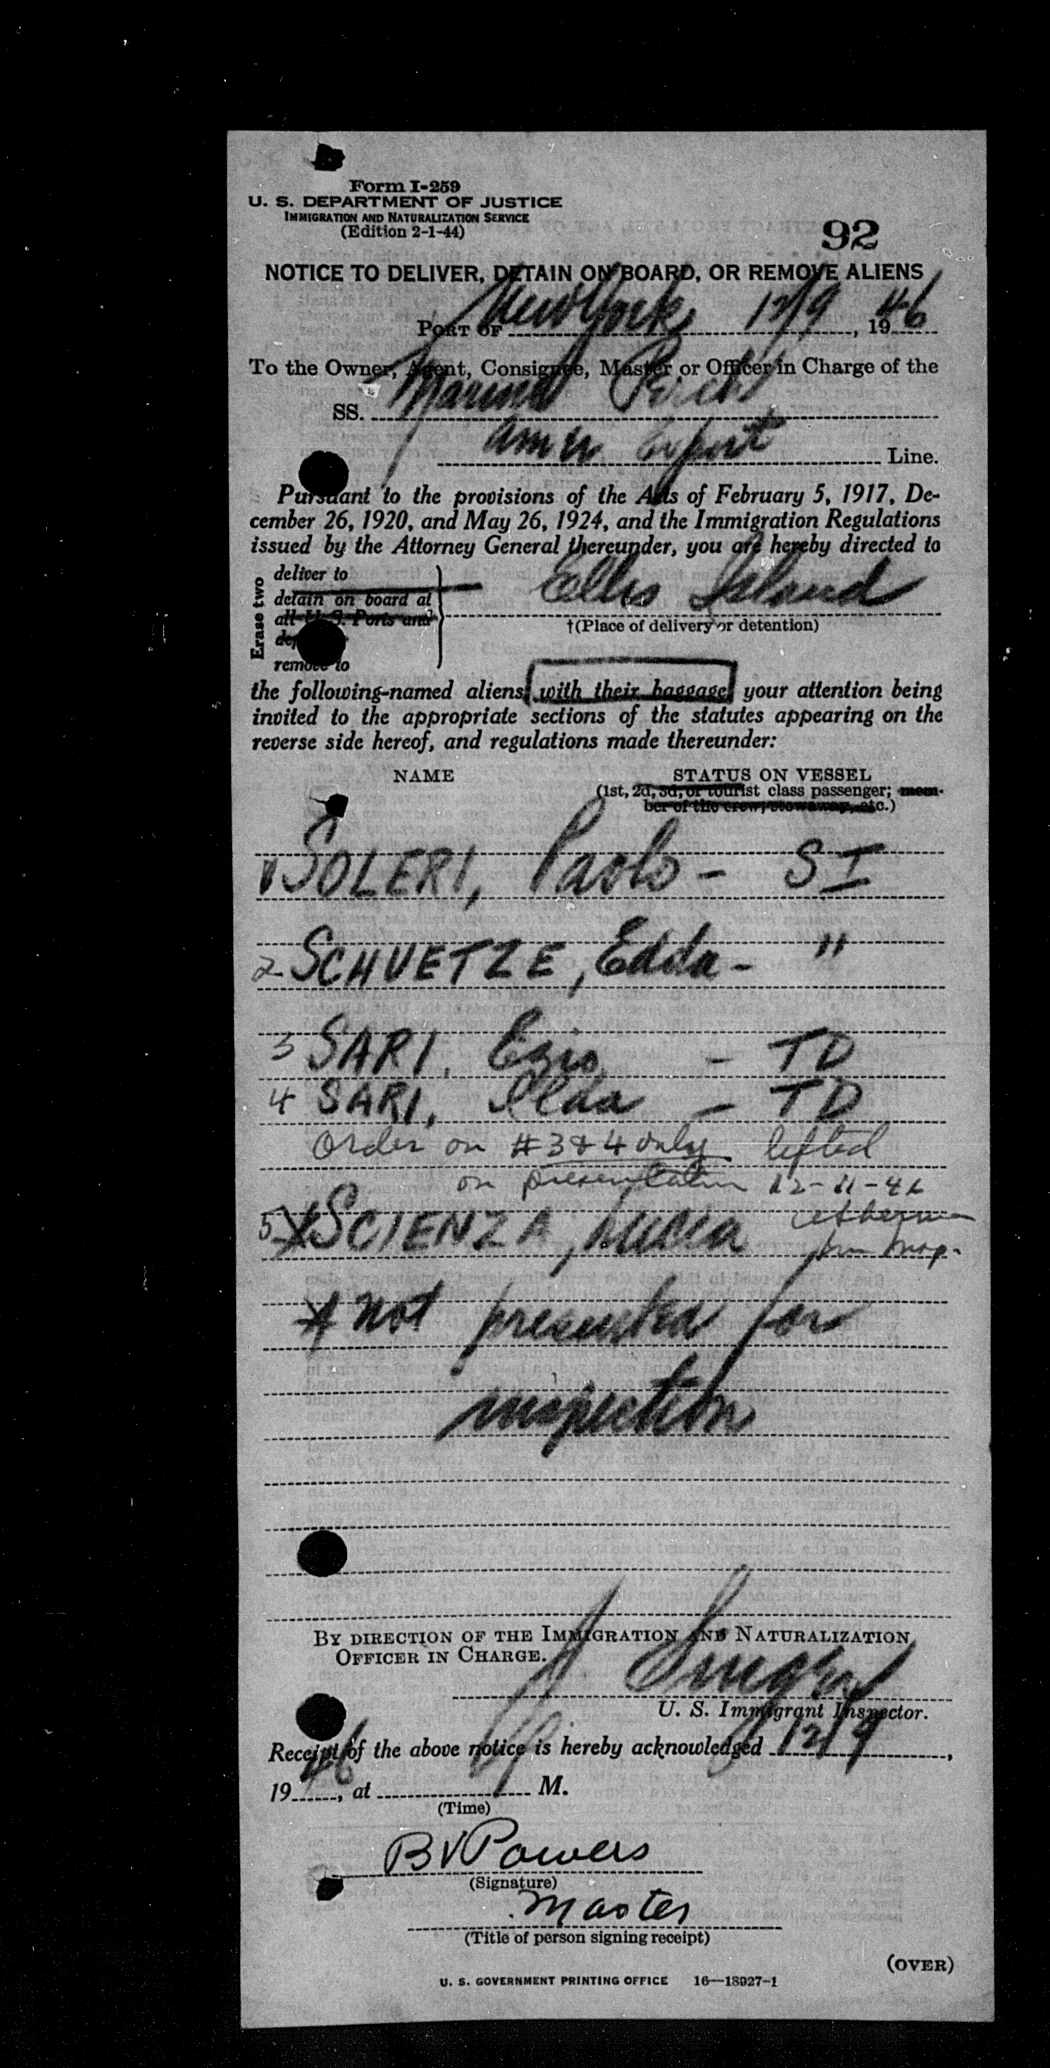 Form I-259
U. S. DEPARTMENT OF JUSTICE
IMMIGRATION AND NATURALIZATION SERVICE
(Edition 2-1-44)
92
NOTICE TO DELIVER, DETAIN ON BOARD, OR REMOVE ALIENS
PORT OF New York 12/9, 1946
To the Owner, Agent, Consignee, Master or Officer in Charge of the
SS. Marine Perch
Amer Export Line.
Pursuant to the provisions of the Acts of February 5, 1917, De-
cember 26, 1920, and May 26, 1924, and the Immigration Regulations
issued by the Attorney General thereunder, you are hereby directed to
Erase two
deliver to
detain on board at
all U. S. Ports and
remove to
Ellis Island
†(Place of delivery or detention)
the following-named aliens, with their baggage, your attention being
invited to the appropriate sections of the statutes appearing on the
reverse side hereof, and regulations made thereunder:
NAME STATUS ON VESSEL
(1st, 2d, 3d, or tourist class passenger; mem-
ber of the crew, stowaway, etc.)
1 SOLERI, Paolo - SI
2 SCHUETZE, Edda - "
3 SARI, Ezio - TD
4 SARI, Ilda - TD
Order on #3 & 4 only lifted
on presentation 12-11-46
5 X SCIENZA, Lucia
Insp.
X Not presented for
inspection
BY DIRECTION OF THE IMMIGRATION AND NATURALIZATION
OFFICER IN CHARGE.
U. S. Immigrant Inspector.
Receipt of the above notice is hereby acknowledged 12/9,
1946, at M.
(Time)
BV Powers
(Signature)
Master
(Title of person signing receipt)
(OVER)
U. S. GOVERNMENT PRINTING OFFICE 16—18927-1